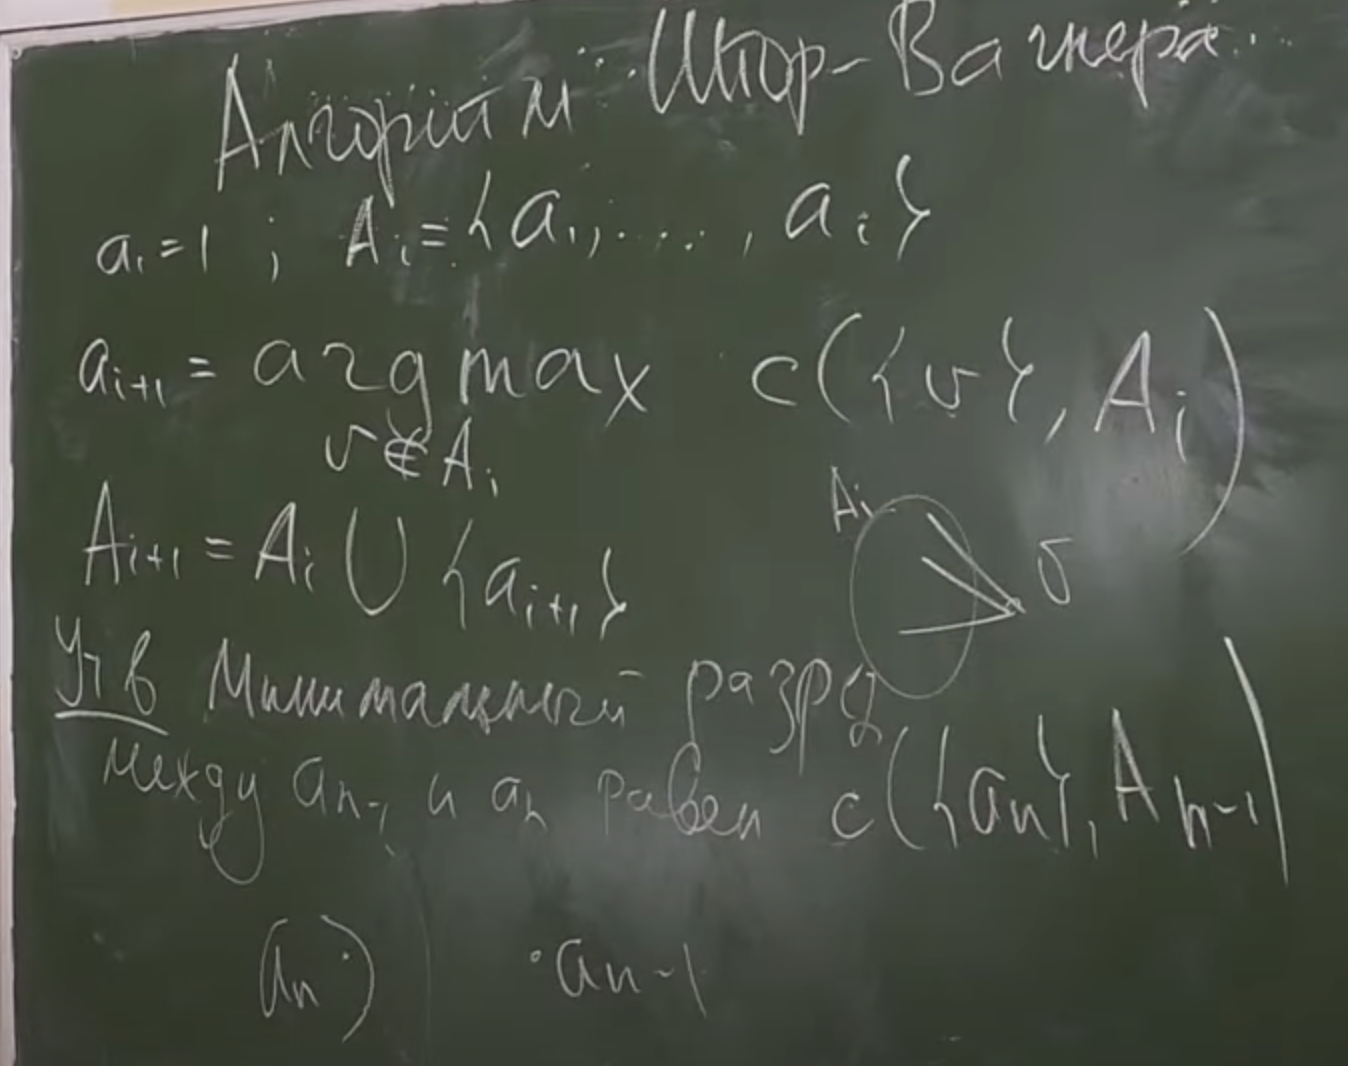 Алгоритм Штор-Вагнера
a₁=1 ; Aᵢ={a₁,...., aᵢ}
aᵢ₊₁ = argmax c({v}, Aᵢ)
v∉Aᵢ
Aᵢ₊₁ = Aᵢ ∪ {aᵢ₊₁}
Aᵢ
v
Утв Минимальный разрез
между aₙ₋₁ и aₙ равен c({aₙ}, Aₙ₋₁)
aₙ aₙ₋₁